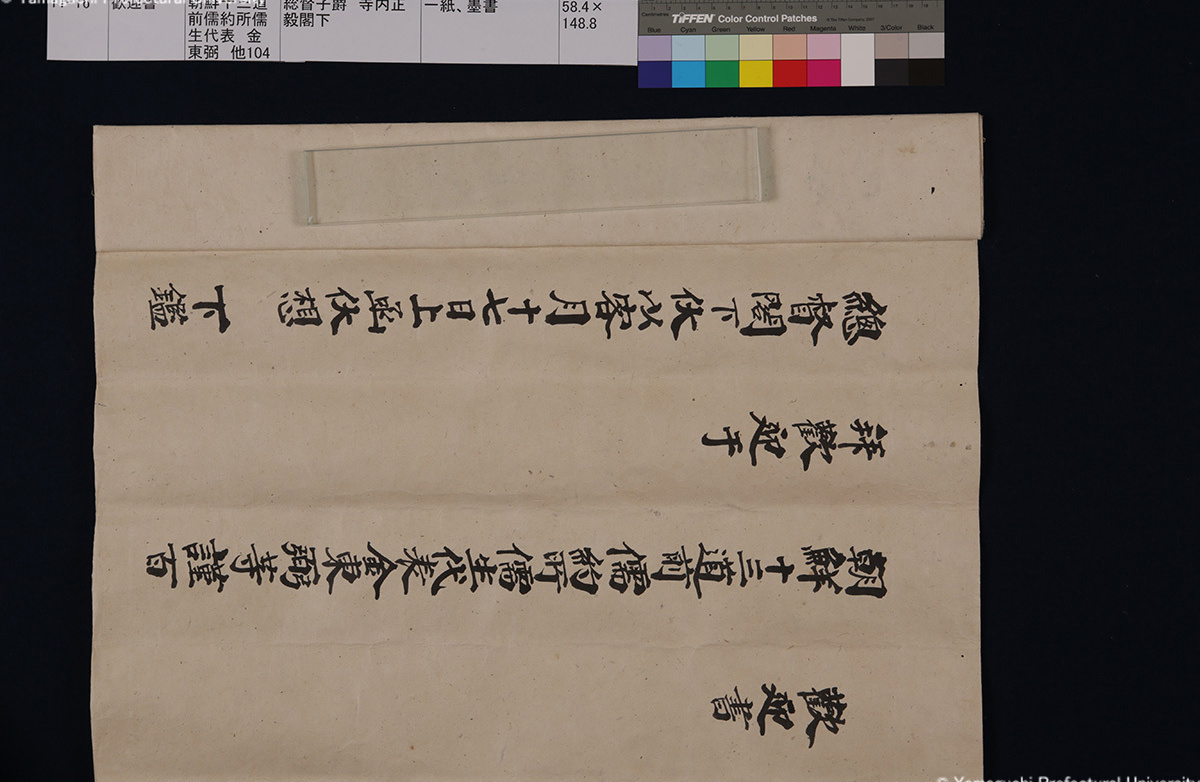 前儒約所儒
生代表 金
東弼 他104
総督子爵 寺内正
毅閣下
一紙、墨書
58.4×
148.8
TIFFEN Color Control Patches
Blue Cyan Green Yellow Red Magenta White 3/Color Black
歡迎書
朝鮮十三道前儒約所儒生代表金東弼等謹百
拜歡迎于
總督閣下伏以客月十七日上函伏想 下鑑
© Yamaguchi Prefectural University